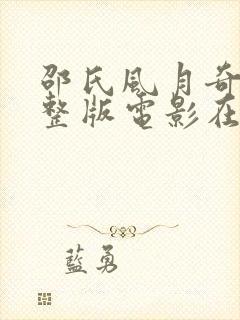 邵氏風月奇
整版電影在
藍勇